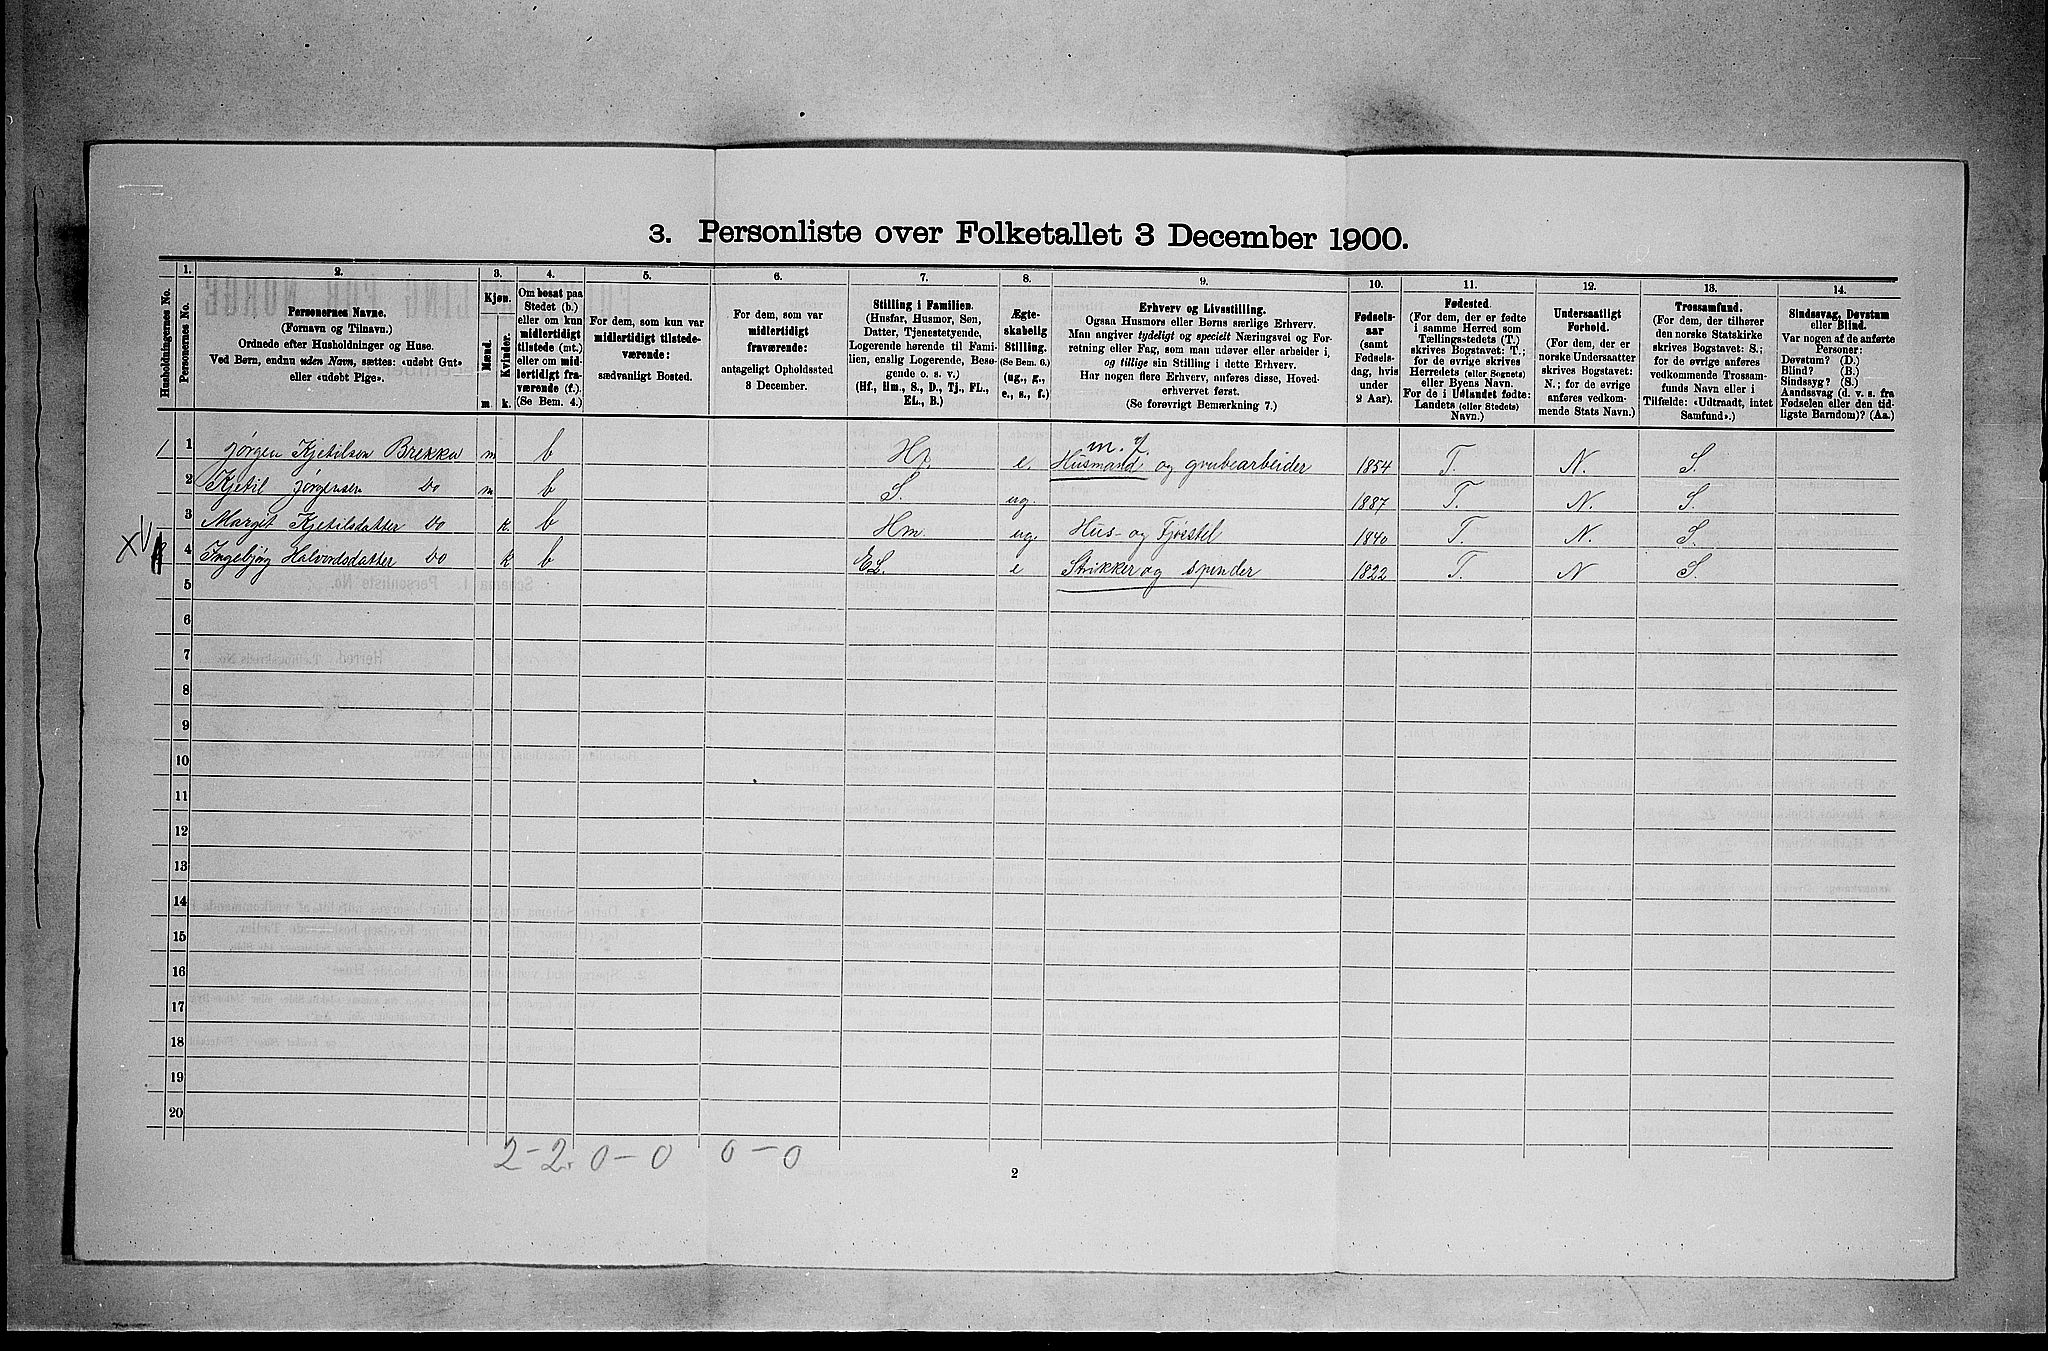 3. Personliste over Folketallet 3 December 1900.
Husholdningernes No.
1.
Personernes No.
2.
Personernes Navne.
(Fornavn og Tilnavn.)
Ordnede efter Husholdninger og Huse.
Ved Børn, endnu uden Navn, sættes: «udøbt Gut»
eller «udøbt Pige».
3.
Kjøn.
Mænd.
Kvinder.
m.
k.
4.
Om bosat paa
Stedet (b.)
eller om kun
midlertidigt
tilstede (mt.)
eller om mid-
lertidigt fra-
værende (f.)
(Se Bem. 4.)
5.
For dem, som kun var
midlertidigt tilstede-
værende:
sædvanligt Bosted.
6.
For dem, som var
midlertidigt
fraværende:
antageligt Opholdssted
3 December.
7.
Stilling i Familien.
(Husfar, Husmor, Søn,
Datter, Tjenestetyende,
Logerende hørende til Fami-
lien, enslig Logerende, Besø-
gende o. s. v.)
(Hf., Hm., S., D., Tj., FL.,
EL., B.)
8.
Ægte-
skabelig
Stilling.
(Se Bem. 6.)
(ug., g.,
e., s., f.)
9.
Erhverv og Livsstilling.
Ogsaa Husmors eller Børns særlige Erhverv.
Man angiver tydeligt og specielt Næringsvei og For-
retning eller Fag, som man udøver eller arbeider i,
og tillige sin Stilling i dette Erhverv.
Har nogen flere Erhverv, anføres disse, Hoved-
erhvervet først.
(Se forøvrigt Bemærkning 7.)
10.
Fødsels-
aar
(samt
Fødsels-
dag, hvis
under
2 Aar).
11.
Fødested.
(For dem, der er fødte
i samme Herred som
Tællingsstedets (T.)
skrives Bogstavet: T.;
for de øvrige skrives
Herredets (eller Sognets)
eller Byens Navn.
For de i Udlandet fødte:
Landets (eller Stedets)
Navn.)
12.
Undersaatligt
Forhold.
(For dem, der er
norske Undersaatter
skrives Bogstavet:
N.; for de øvrige
anføres vedkom-
mende Stats Navn.)
13.
Trossamfund.
(For dem, der tilhører
den norske Statskirke
skrives Bogstavet: S.;
for de øvrige anføres
vedkommende Trossam-
funds Navn eller i
Tilfælde: «Udtraadt, intet
Samfund».)
14.
Sindssvag, Døvstum
eller Blind.
Var nogen af de anførte
Personer:
Døvstum? (D.)
Blind? (B.)
Sindssyg? (S.)
Aandssvag (d. v. s. fra
Fødselen eller den tid-
ligste Barndom)? (Aa.)
m. f.
1 1 Jørgen Kjetilsen Brekka m b Hf. e. Husmand og grubearbeider 1854 T. N. S.
2 Kjetil Jørgensen Do m b S. ug. 1887 T. N. S.
3 Margit Kjetilsdatter Do k. b Hm. ug. Hus- og Fjøsstel 1840 T. N. S.
4 Ingebjøg Halvordsdatter Do k b EL. e Strikker og spinder 1822 T. N S.
5
6
7
8
9
10
11
12
13
14
15
16
17
18
19
20
2-2. 0-0 0-0
2